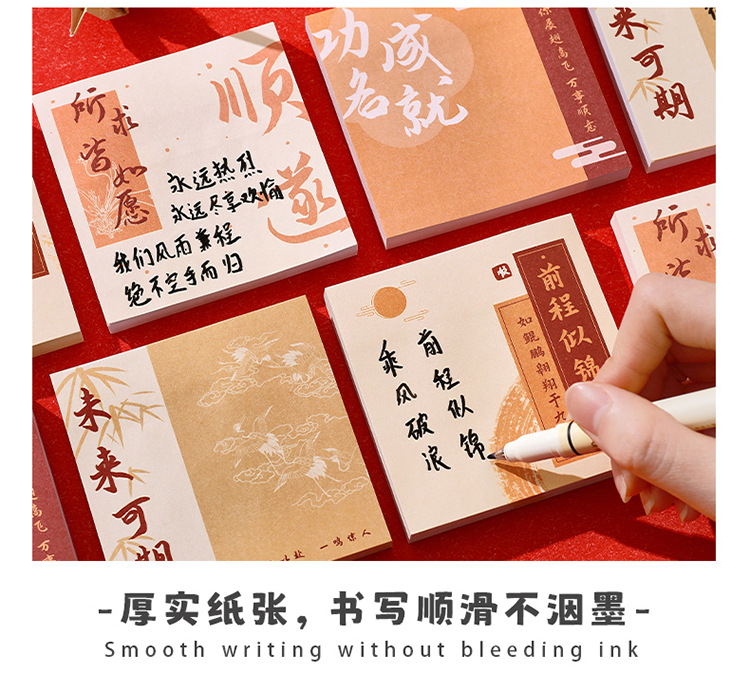 所求皆如愿
顺遂
永远热烈
永远尽享欢愉
我们风雨兼程
绝不空手而归
功成名就
展翅高飞 万事顺意
来可期
所求皆
顺
前程似锦
如鲲鹏翱翔于九
前程似锦
乘风破浪
未来可期
一鸣惊人
高飞 万
-厚实纸张，书写顺滑不洇墨-
Smooth writing without bleeding ink